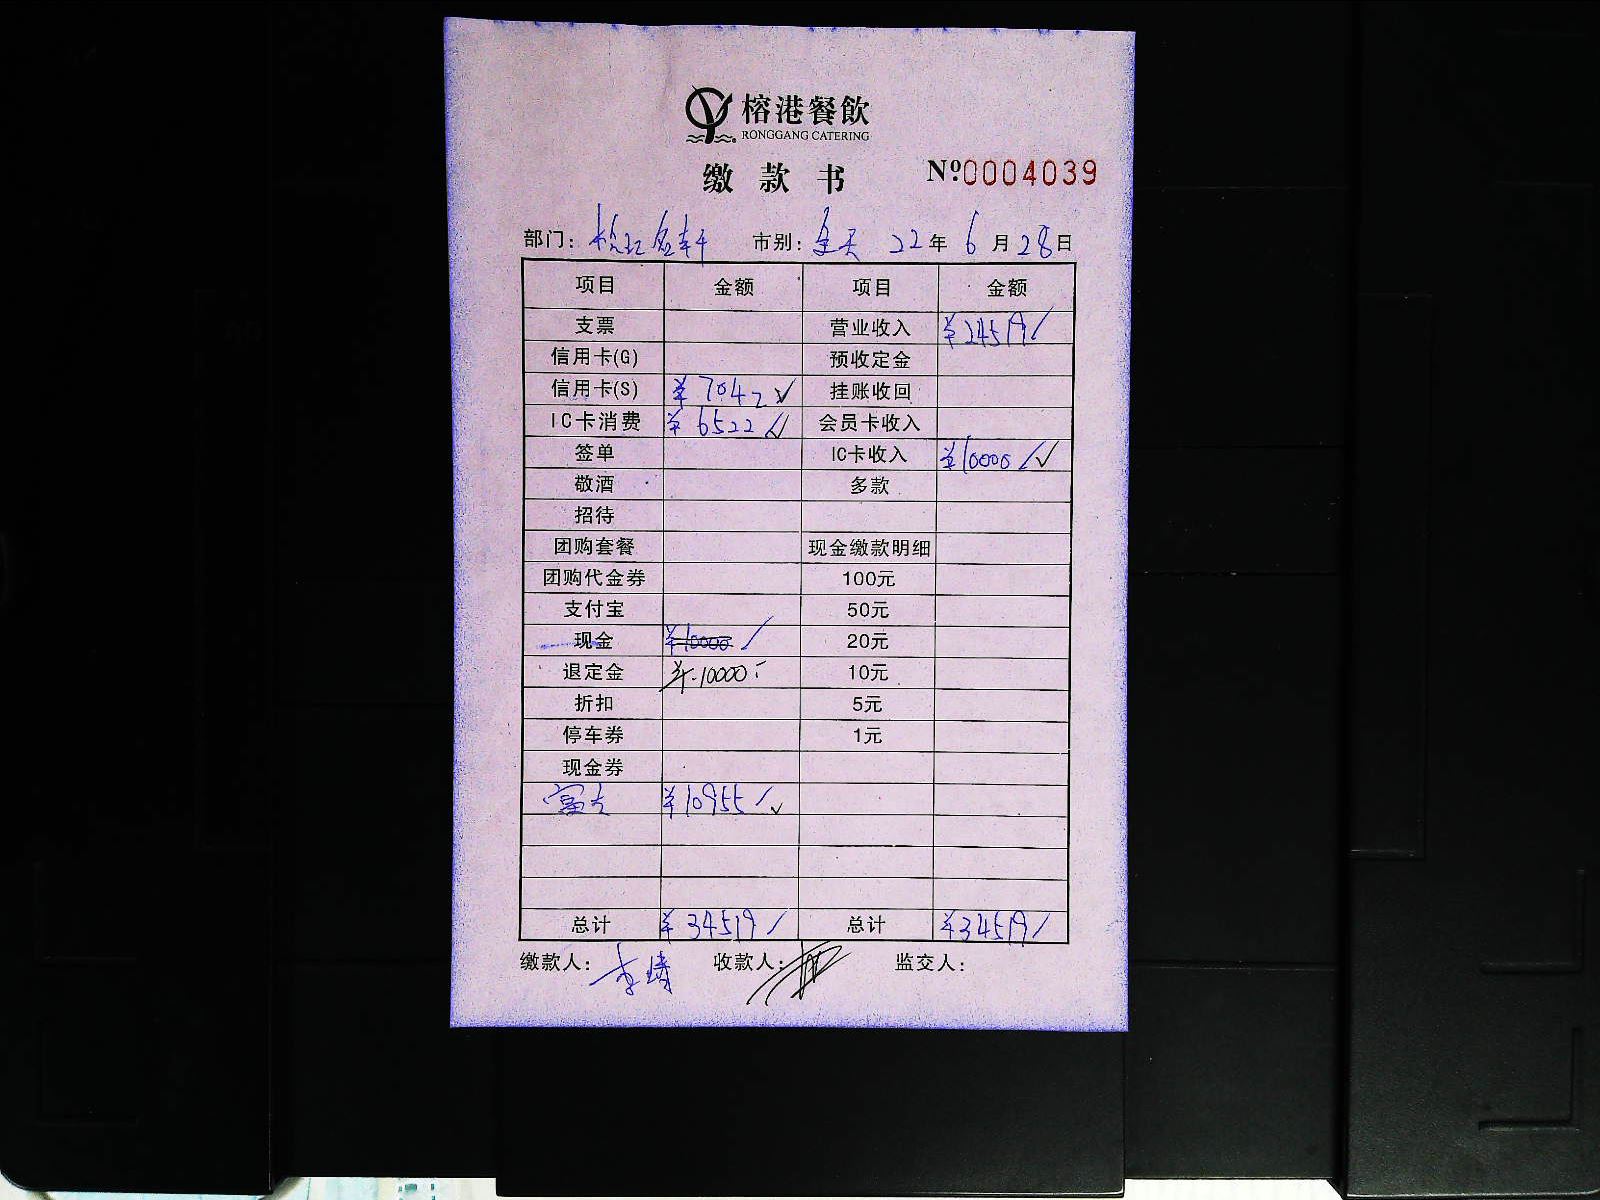 榕港餐飲
RONGGANG CATERING
缴款书 Nº0004039
部门: 市别: 全天 22年6月28日
项目 金额 项目 金额
支票 营业收入 ¥24519
信用卡(G) 预收定金
信用卡(S) ¥7042 挂账收回
IC卡消费 ¥6522 会员卡收入
签单 IC卡收入 ¥10000
敬酒 多款
招待
团购套餐 现金缴款明细
团购代金券 100元
支付宝 50元
现金 ¥10000 20元
退定金 ¥10000 10元
折扣 5元
停车券 1元
现金券
富友 ¥10955
总计 ¥34519 总计 ¥34519
缴款人: 收款人: 监交人: